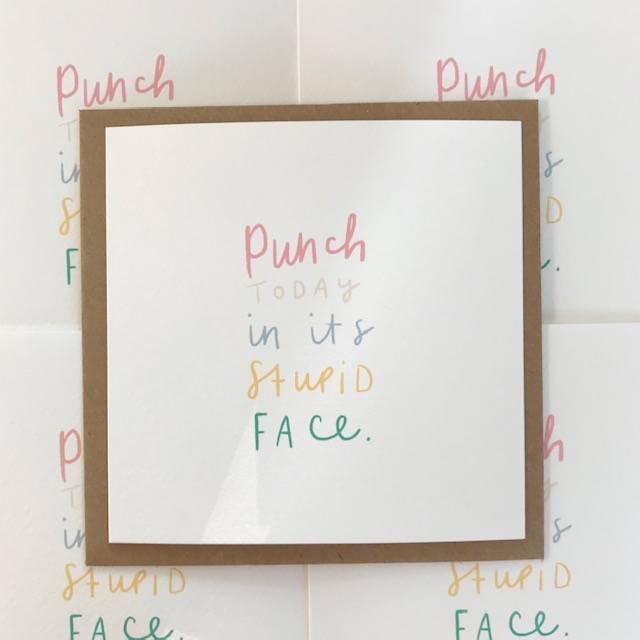 Punch
Punch
Punch
TODAY
in its
StupiD
FACe.
StupiD
FACe.
StupiD
FACe.